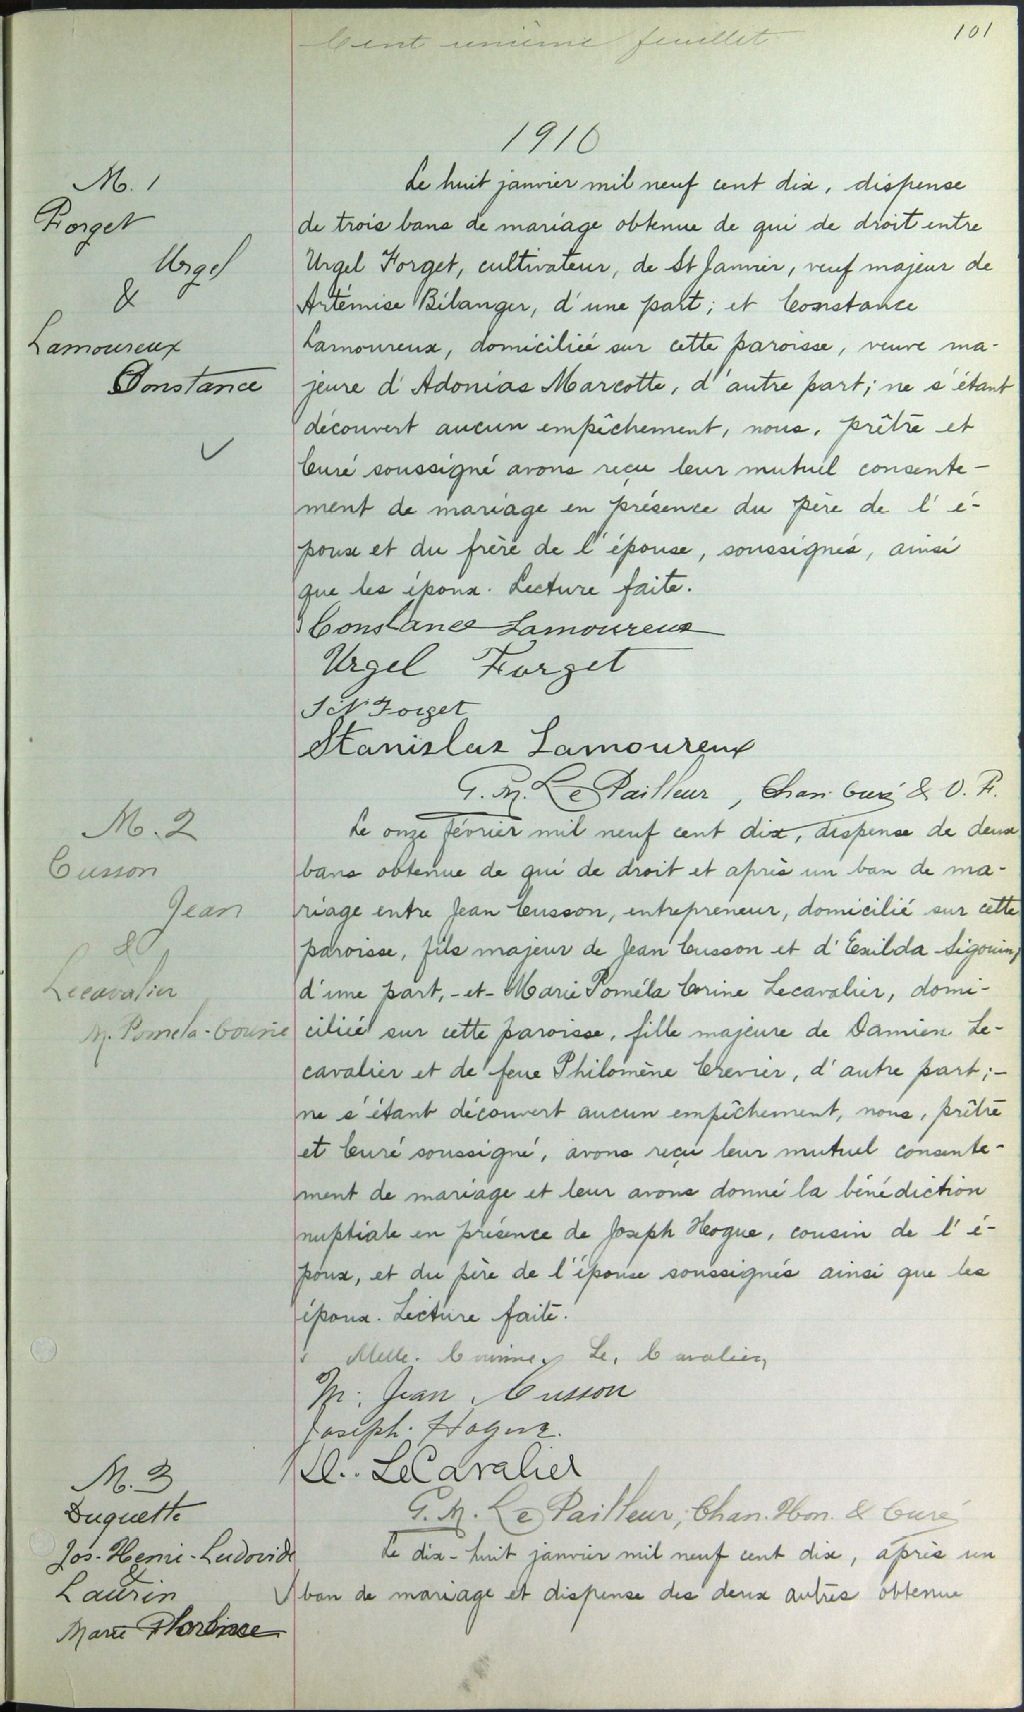 Cent unième feuillet
101
1910
M. 1
Forget
Urgel
&
Lamoureux
Constance
Le huit janvier mil neuf cent dix, dispense
de trois bans de mariage obtenue de qui de droit entre
Urgel Forget, cultivateur, de St Janvier, veuf majeur de
Artémise Bélanger, d'une part; et Constance
Lamoureux, domiciliée sur cette paroisse, veuve ma-
jeure d'Adonias Marcotte, d'autre part; ne s'étant
découvert aucun empêchement, nous, prêtre et
Curé soussigné avons reçu leur mutuel consente-
ment de mariage en présence du père de l'é-
poux et du frère de l'épouse, soussignés, ainsi
que les époux. Lecture faite.
Constance Lamoureux
Urgel Forget
Forget
Stanislas Lamoureux
G. M. Le Pailleur, Chan. Curé & V. F.
M. 2
Cusson
Jean
&
Lecavalier
M. Pomela-Courie
Le onze février mil neuf cent dix, dispense de deux
bans obtenue de qui de droit et après un ban de ma-
riage entre Jean Cusson, entrepreneur, domicilié sur cette
paroisse, fils majeur de Jean Cusson et d'Exilda Sigouin,
d'une part, -et- Marie Poméla Corine Lecavalier, domi-
ciliée sur cette paroisse, fille majeure de Damien Le-
cavalier et de feue Philomène Crevier, d'autre part;-
ne s'étant découvert aucun empêchement, nous, prêtre
et Curé soussigné, avons reçu leur mutuel consente-
ment de mariage et leur avons donné la bénédiction
nuptiale en présence de Joseph Hogue, cousin de l'é-
poux, et du père de l'épouse soussignés ainsi que les
époux. Lecture faite.
Melle. Corinne. Le. Cavalier,
M. Jean. Cusson
Joseph. Hogue.
D. LeCavalier
G. M. Le Pailleur, Chan. Hon. & Curé
M. 3
Duquette
Jos-Henri-Ludovide
&
Laurin
Marie Florbise
Le dix-huit janvier mil neuf cent dix, après un
ban de mariage et dispense des deux autres obtenue